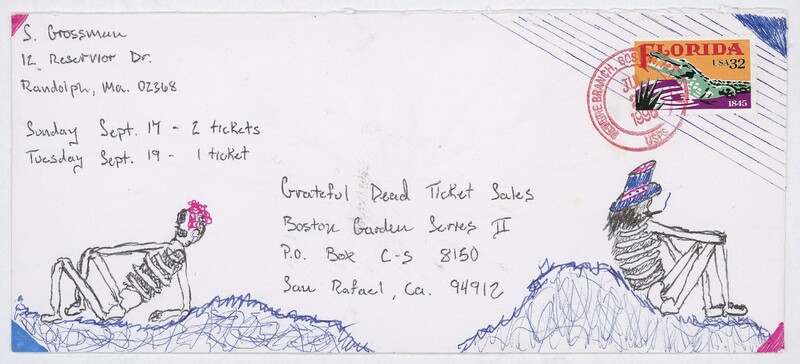 S. Grossman
12 Reservior Dr.
Randolph, Ma. 02368
Sunday Sept. 17 - 2 tickets
Tuesday Sept. 19 - 1 ticket
FLORIDA
USA 32
1845
REVERE BRANCH, BOS
USPS
Grateful Dead Ticket Sales
Boston Garden Series II
P.O. Box C-S 8150
San Rafael, Ca. 94912